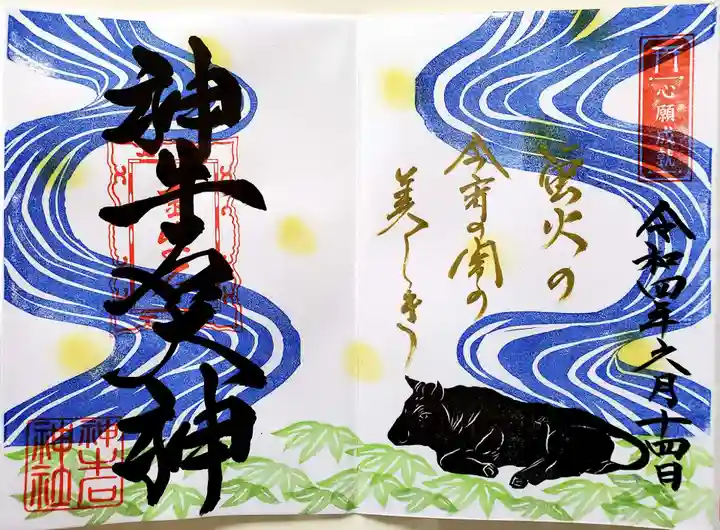 心願成就
令和四年六月十四日
蛍火の
今宵の闇の
美しき
神牛 大神
神社